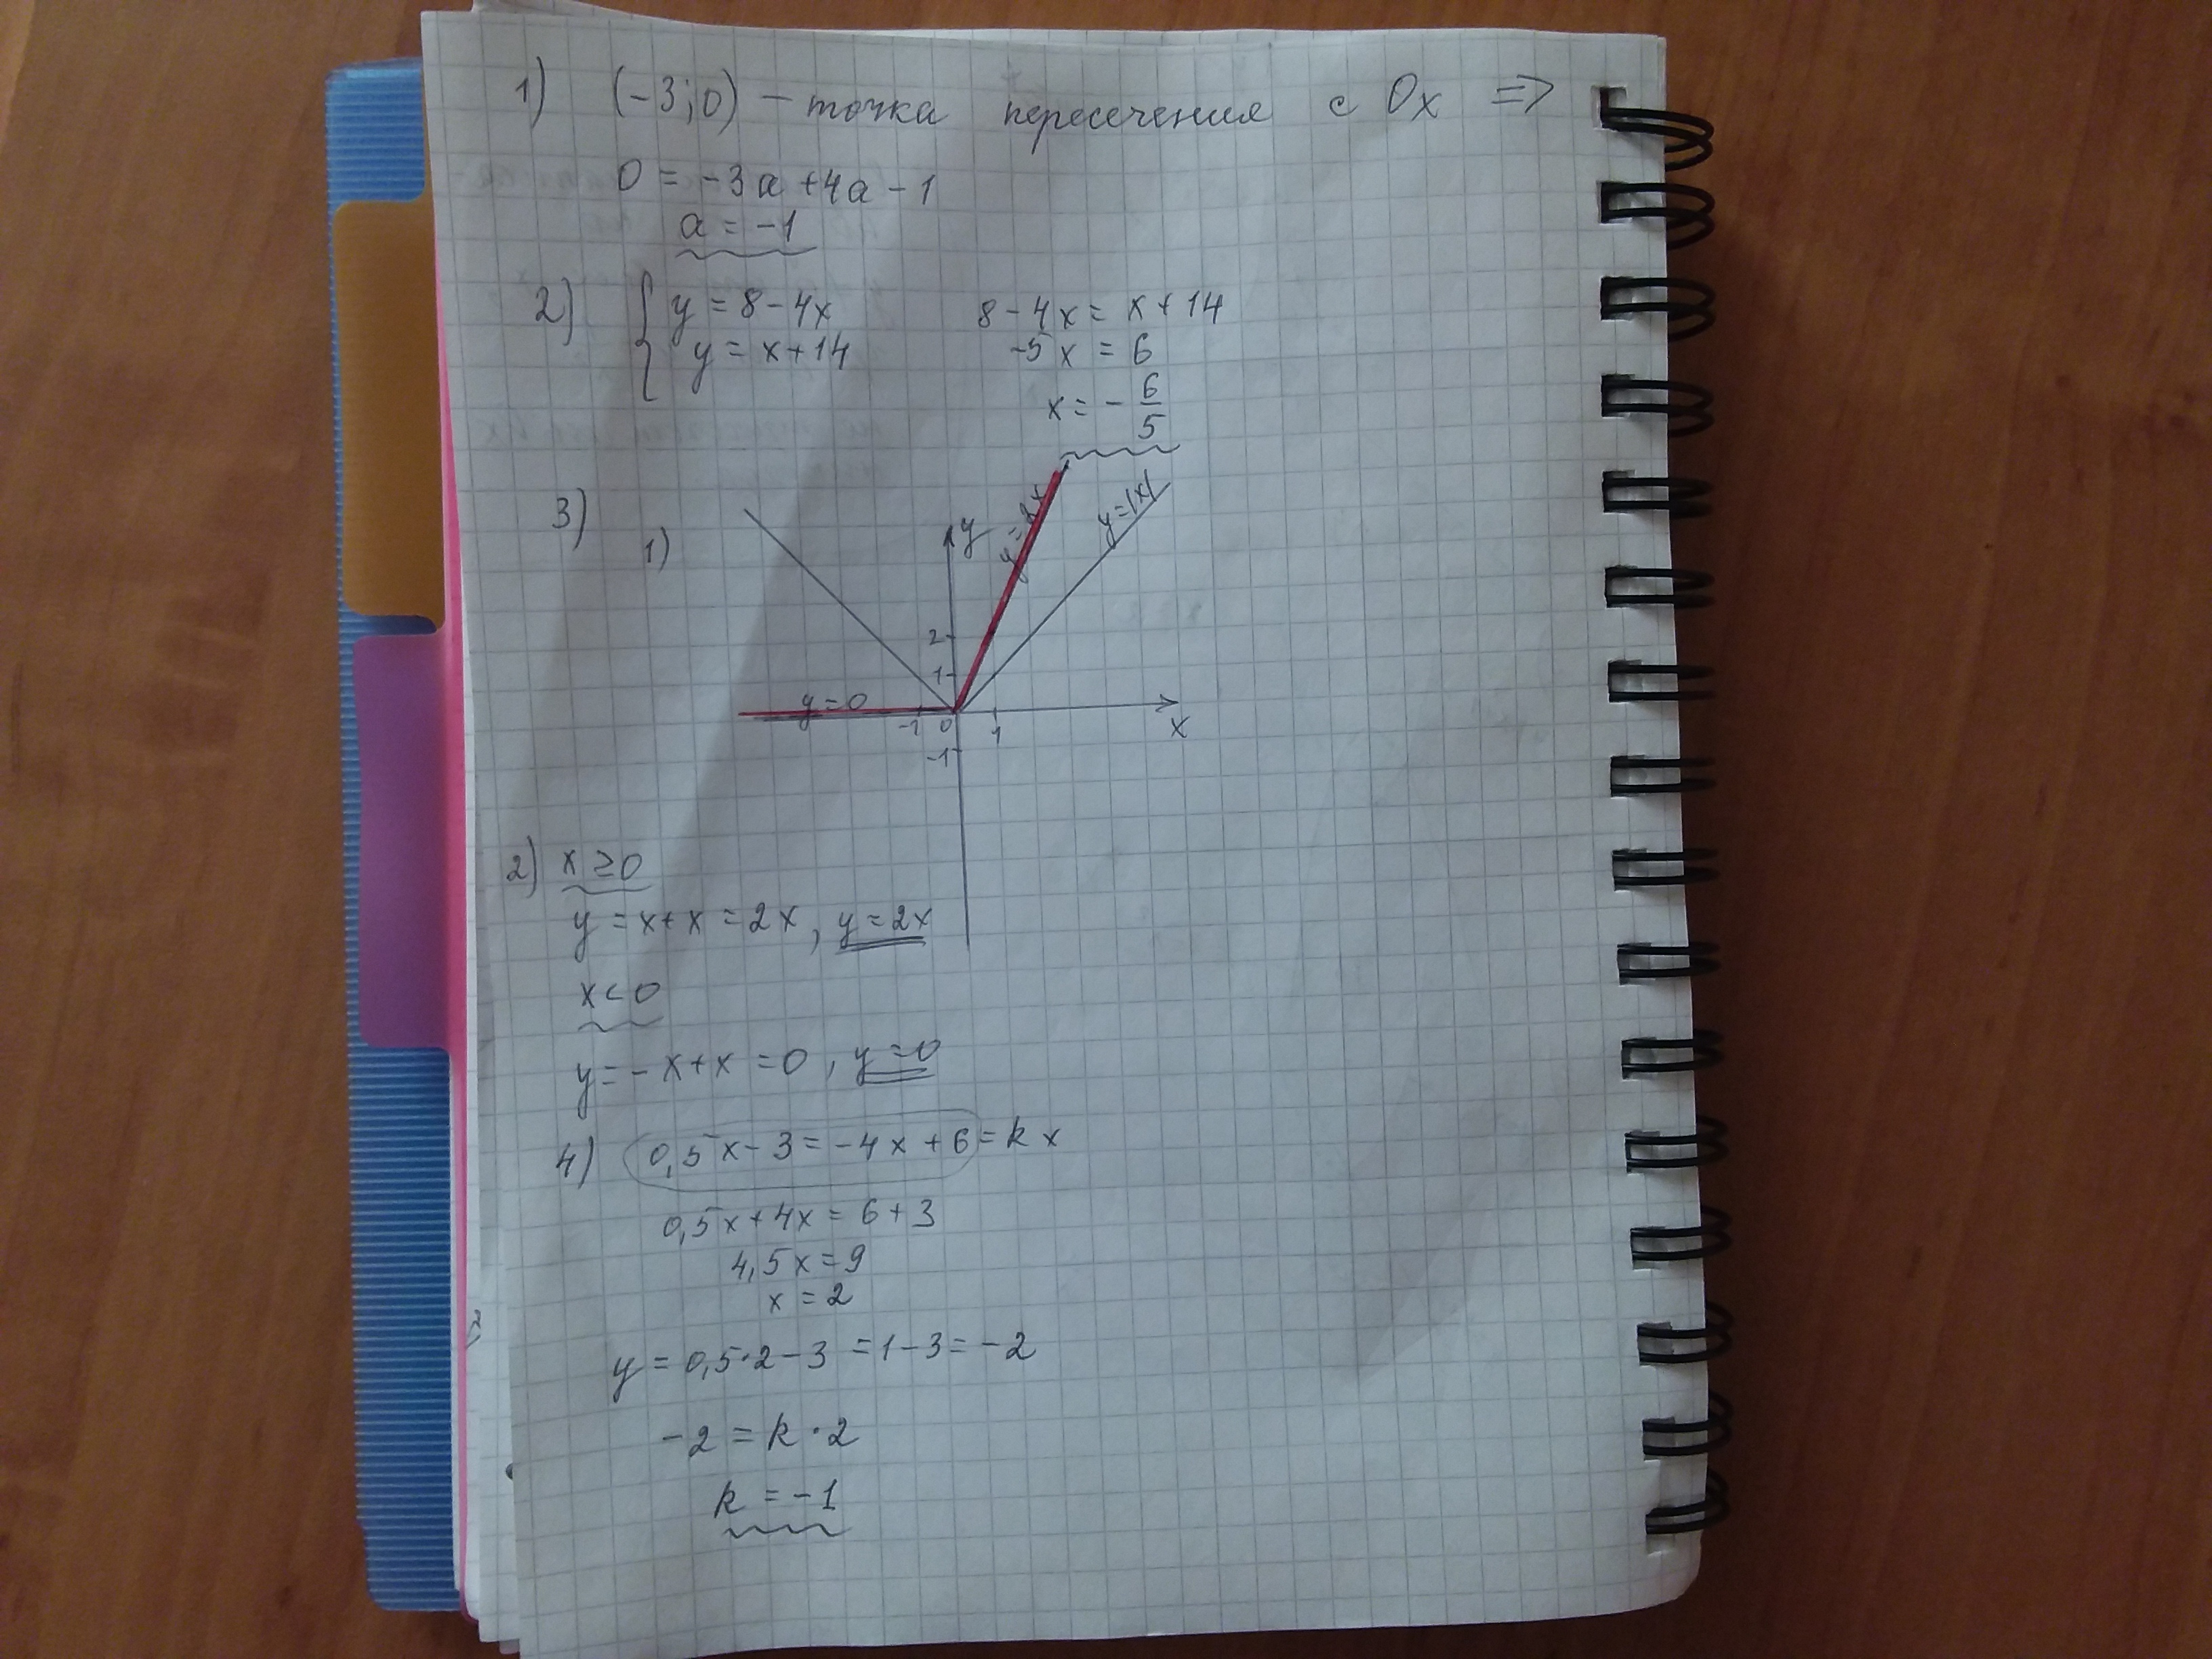 1) (-3;0) – точка пересечения с Ox =>
0 = -3a + 4a - 1
a = -1
2) { y = 8 - 4x    8 - 4x = x + 14
y = x + 14    -5x = 6
x = - 6/5
3) 1)
y
y = 2x
y = |x|
2
1
y = 0
-1 0 1
x
-1
2) x ≥ 0
y = x + x = 2x, y = 2x
x < 0
y = - x + x = 0, y = 0
4) 0,5x - 3 = -4x + 6 = kx
0,5x + 4x = 6 + 3
4,5x = 9
x = 2
y = 0,5·2 - 3 = 1 - 3 = -2
-2 = k·2
k = -1